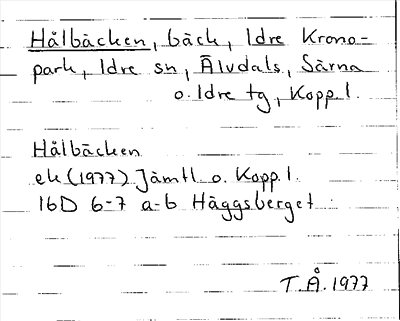 Hålbäcken, bäck, Idre Krono=
park, Idre sn, Älvdals, Särna
o. Idre tg, Kopp.l.
Hålbäcken
ek (1977) Jämtl o. Kopp.l.
16D 6-7 a-b Häggsberget
T.Å. 1977